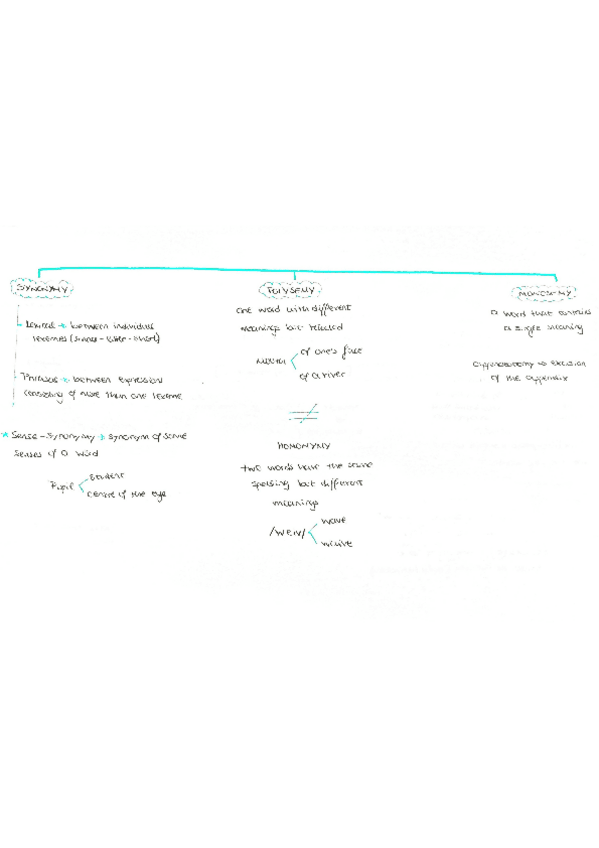 SYNONYMY
Lexical → between individual
lexemes (
Phrasal → between expression
consisting of more than one lexeme
* Sense-Synonymy → synonym of some
senses of a word
Pupil
student
centre of the eye
POLYSEMY
one word with different
meanings but related
mouth
of one's face
of a river
≠
HOMONYMY
two words have the same
spelling but different
meanings
/weiv/
wave
waive
MONOSEMY
a word that
a single meaning
Appendectomy →
of the appendix